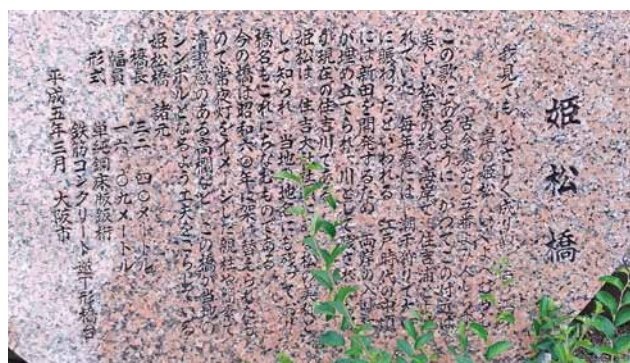 姫松橋
我見ても ひさしく成りぬ
岸の姫松 いくよへぬらん
(古今集九〇五番
この歌にあるように、かつてこの付近は
美しい松原の続く海岸で、住吉浦と
れていた。毎年春には、潮干狩りで大い
に賑わったといわれる。江戸時代の中頃
には新田を開発するため、両野の入
が埋め立てられ、川として残
が現在の住吉川である。
姫松は、住吉大社
して知られ、当地の地名にも残って
橋名もこれにちなむものである。
今の橋は昭和六四年に架け替えられたも
ので、常夜灯をイメージした親柱や
清潔感のある高欄など、この橋が当地の
シンボルとなるよう工夫をこらしている
姫松橋 諸元
橋長 三二・四〇メートル
幅員 一六・〇九メートル
形式 単純鋼床版鈑桁
鉄筋コンクリート逆T形橋台
平成五年三月 大阪市